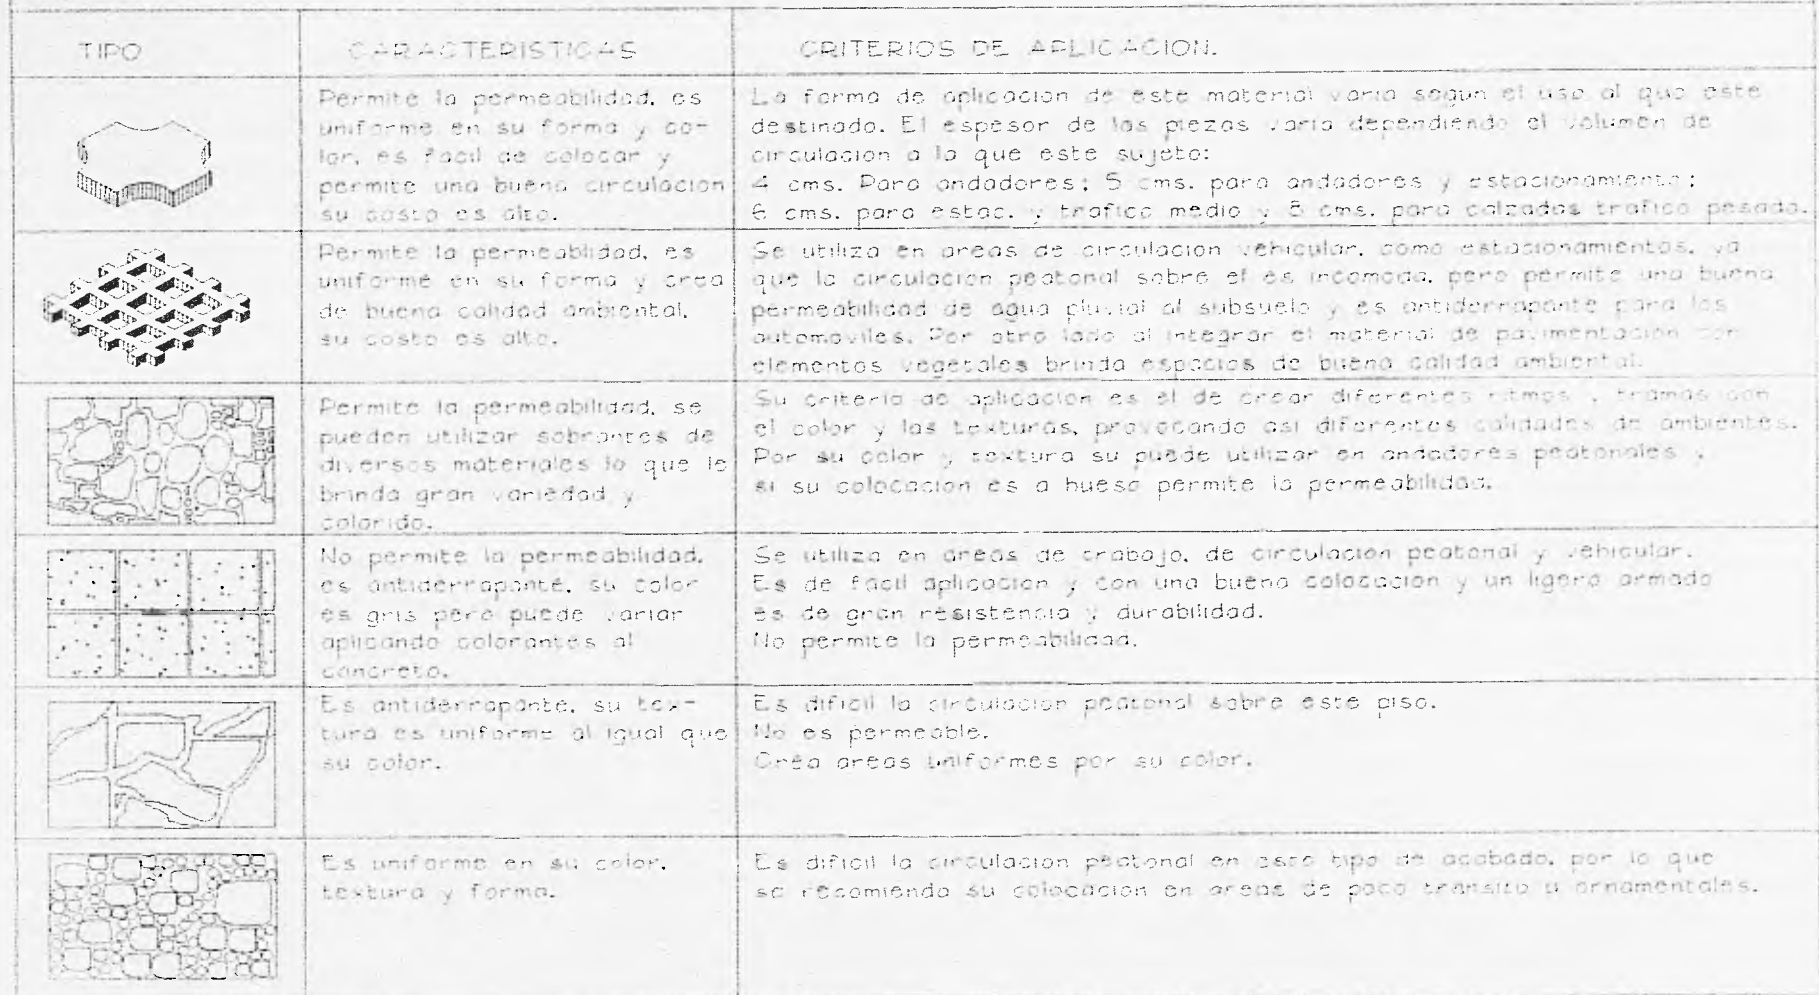 TIPO
CARACTERISTICAS
CRITERIOS DE APLICACION.
Permite la permeabilidad, es
uniforme en su forma y co-
lor, es facil de colocar y
permite una buena circulacion
su costo es alto.
La forma de aplicacion de este material varia segun el uso al que este
destinado. El espesor de las piezas varia dependiendo el volumen de
circulacion a la que este sujeto:
4 cms. Para andadores; 5 cms. para andadores y estacionamiento;
6 cms. para estac. y trafico medio y 8 cms. para calzadas trafico pesado.
Permite la permeablidad, es
uniforme en su forma y crea
de buena calidad ambiental,
su costo es alto.
Se utiliza en areas de circulacion vehicular, como estacionamientos, ya
que la circulacion peatonal sobre el es incomoda, pero permite una buena
permeabilidad de agua pluvial al subsuelo y es antiderrapante para los
automoviles. Por otro lado al integrar el material de pavimentacion con
elementos vegetales brinda espacios de buena calidad ambiental.
Permite la permeabilidad, se
pueden utilizar sobrantes de
diversos materiales lo que le
brinda gran variedad y
colorido.
Su criterio de aplicacion es el de crear diferentes ritmos y tramas con
el color y las texturas, provocando asi diferentes calidades de ambientes.
Por su color y textura su puede utilizar en andadores peatonales y
si su colocacion es a hueso permite la permeabilidad.
No permite la permeabilidad,
es antiderrapante, su color
es gris pero puede variar
aplicando colorantes al
concreto.
Se utiliza en areas de trabajo, de circulacion peatonal y vehicular.
Es de facil aplicacion y con una buena colocacion y un ligero armado
es de gran resistencia y durabilidad.
No permite la permeabilidad.
Es antiderrapante, su tex-
tura es uniforme al igual que
su color.
Es dificil la circulacion peatonal sobre este piso.
No es permeable.
Crea areas uniformes por su color.
Es uniforme en su color,
textura y forma.
Es dificil la circulacion peatonal en este tipo de acabado, por lo que
se recomienda su colocacion en areas de poco transito u ornamentales.